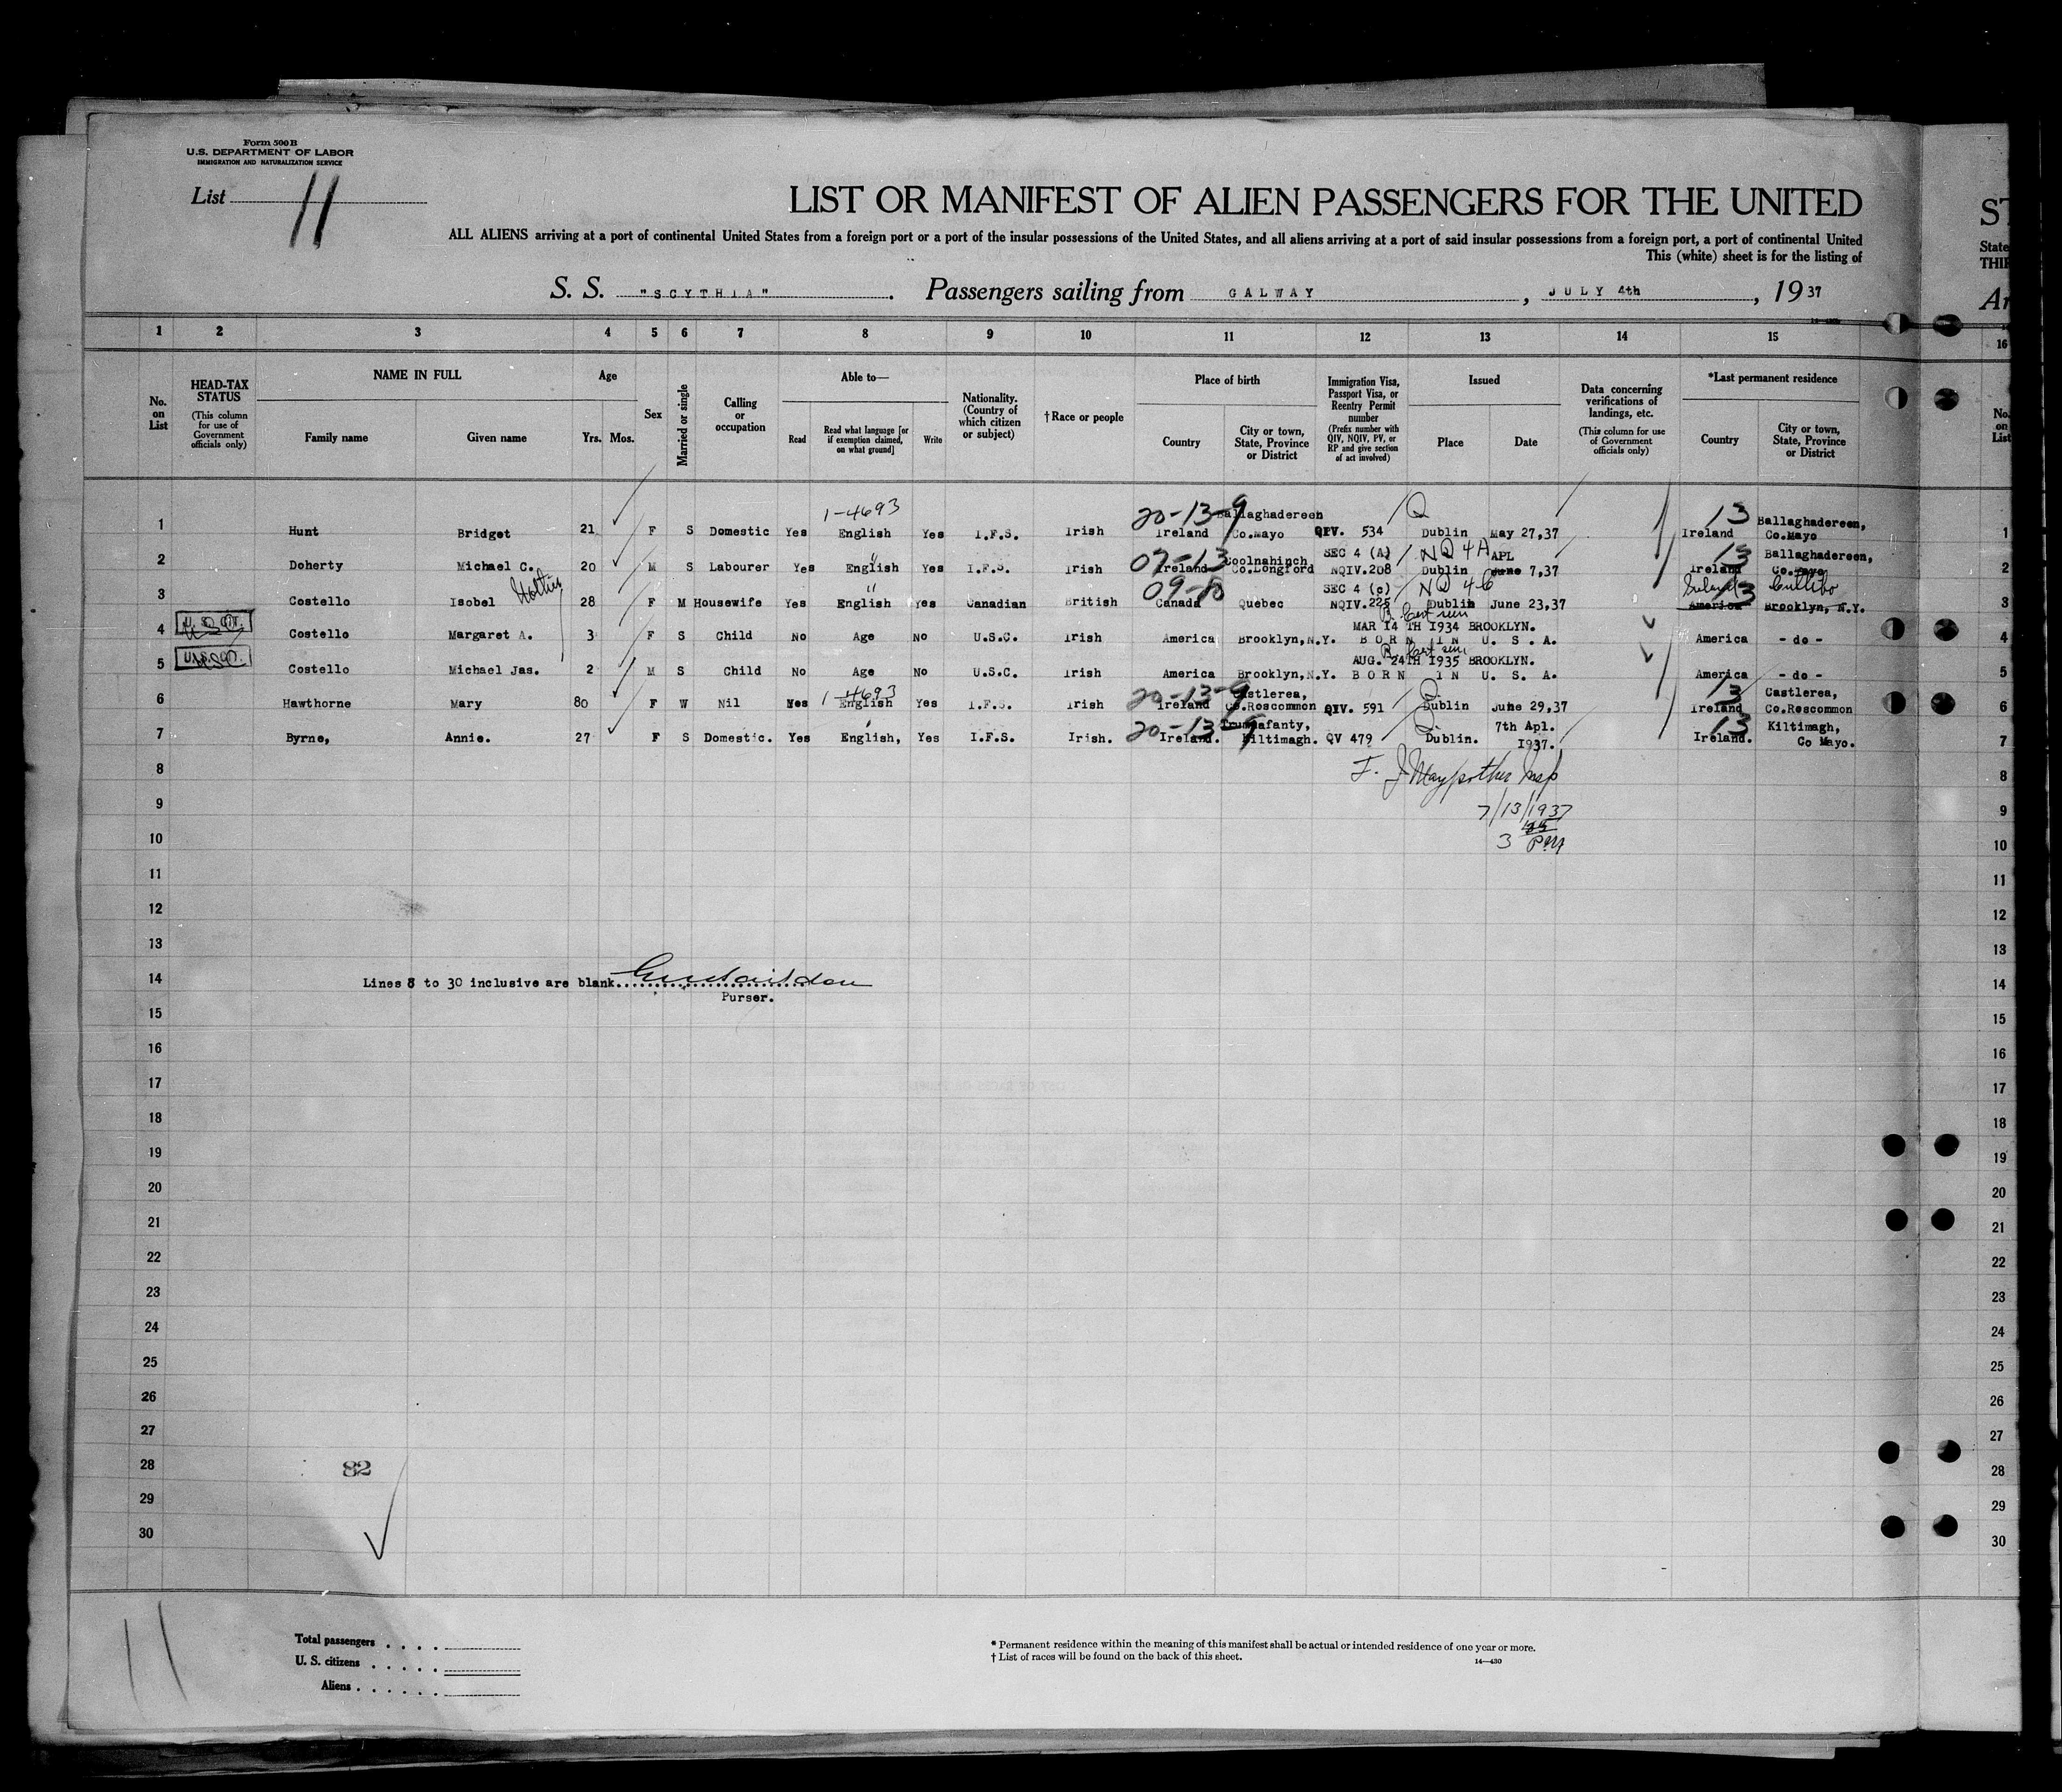 Form 500 B
U.S. DEPARTMENT OF LABOR
IMMIGRATION AND NATURALIZATION SERVICE
List 11
LIST OR MANIFEST OF ALIEN PASSENGERS FOR THE UNITED
ALL ALIENS arriving at a port of continental United States from a foreign port or a port of the insular possessions of the United States, and all aliens arriving at a port of said insular possessions from a foreign port, a port of continental United
This (white) sheet is for the listing of
S. S. "SCYTHIA". Passengers sailing from GALWAY, JULY 4th, 1937
ST
State
THIR
Ar
1 2 3 4 5 6 7 8 9 10 11 12 13 14 15 16
No. on List
HEAD-TAX STATUS (This column for use of Government officials only)
NAME IN FULL
Family name Given name
Age
Yrs. Mos.
Sex
Married or single
Calling or occupation
Able to—
Read
Read what language [or if exemption claimed, on what ground]
Write
Nationality. (Country of which citizen or subject)
†Race or people
Place of birth
Country
City or town, State, Province or District
Immigration Visa, Passport Visa, or Reentry Permit number (Prefix number with QIV, NQIV, PV, or RP and give section of act involved)
Issued
Place Date
Data concerning verifications of landings, etc. (This column for use of Government officials only)
*Last permanent residence
Country
City or town, State, Province or District
No. on List
1-4693 20-13-9 Ballaghadereen Q 13 Ballaghadereen,
1 Hunt Bridget 21 F S Domestic Yes English Yes I.F.S. Irish Ireland Co.Mayo QIV. 534 Dublin May 27,37 Ireland Co.Mayo 1
" 07-13 Coolnahinch SEC 4 (A) NQ 4A APL 13 Ballaghadereen,
2 Doherty Michael C. 20 M S Labourer Yes English Yes I.F.S. Irish Ireland Co.Longford NQIV.208 Dublin June 7,37 Ireland Co.Mayo 2
" 09- SEC 4 (c) NQ 4C Ireland 13
3 Costello Isobel 28 F M Housewife Yes English Yes Canadian British Canada Quebec NQIV.225 Dublin June 23,37 America Brooklyn, N.Y. 3
MAR 14 TH 1934 BROOKLYN.
4 Costello Margaret A. 3 F S Child No Age No U.S.C. Irish America Brooklyn,N.Y. BORN IN U. S. A. America - do - 4
AUG. 24TH 1935 BROOKLYN.
5 Costello Michael Jas. 2 M S Child No Age No U.S.C. Irish America Brooklyn,N.Y. BORN IN U. S. A. America - do - 5
1-4693 20-13-9 Castlerea, Q 13 Castlerea,
6 Hawthorne Mary 80 F W Nil Yes English Yes I.F.S. Irish Ireland Co.Roscommon QIV. 591 Dublin June 29,37 Ireland Co.Roscommon 6
20-13-9 7th Apl. 13 Kiltimagh,
7 Byrne, Annie. 27 F S Domestic. Yes English, Yes I.F.S. Irish. Ireland. Kiltimagh. QV 479 Dublin. 1937. Ireland. Co Mayo. 7
8 8
9 7/13/1937 9
10 3 10
11 11
12 12
13 13
14 Lines 8 to 30 inclusive are blank 14
Purser.
15 15
16 16
17 17
18 18
19 19
20 20
21 21
22 22
23 23
24 24
25 25
26 26
27 27
28 82 28
29 29
30 30
11
Total passengers
U. S. citizens
Aliens
* Permanent residence within the meaning of this manifest shall be actual or intended residence of one year or more.
† List of races will be found on the back of this sheet.
14—430